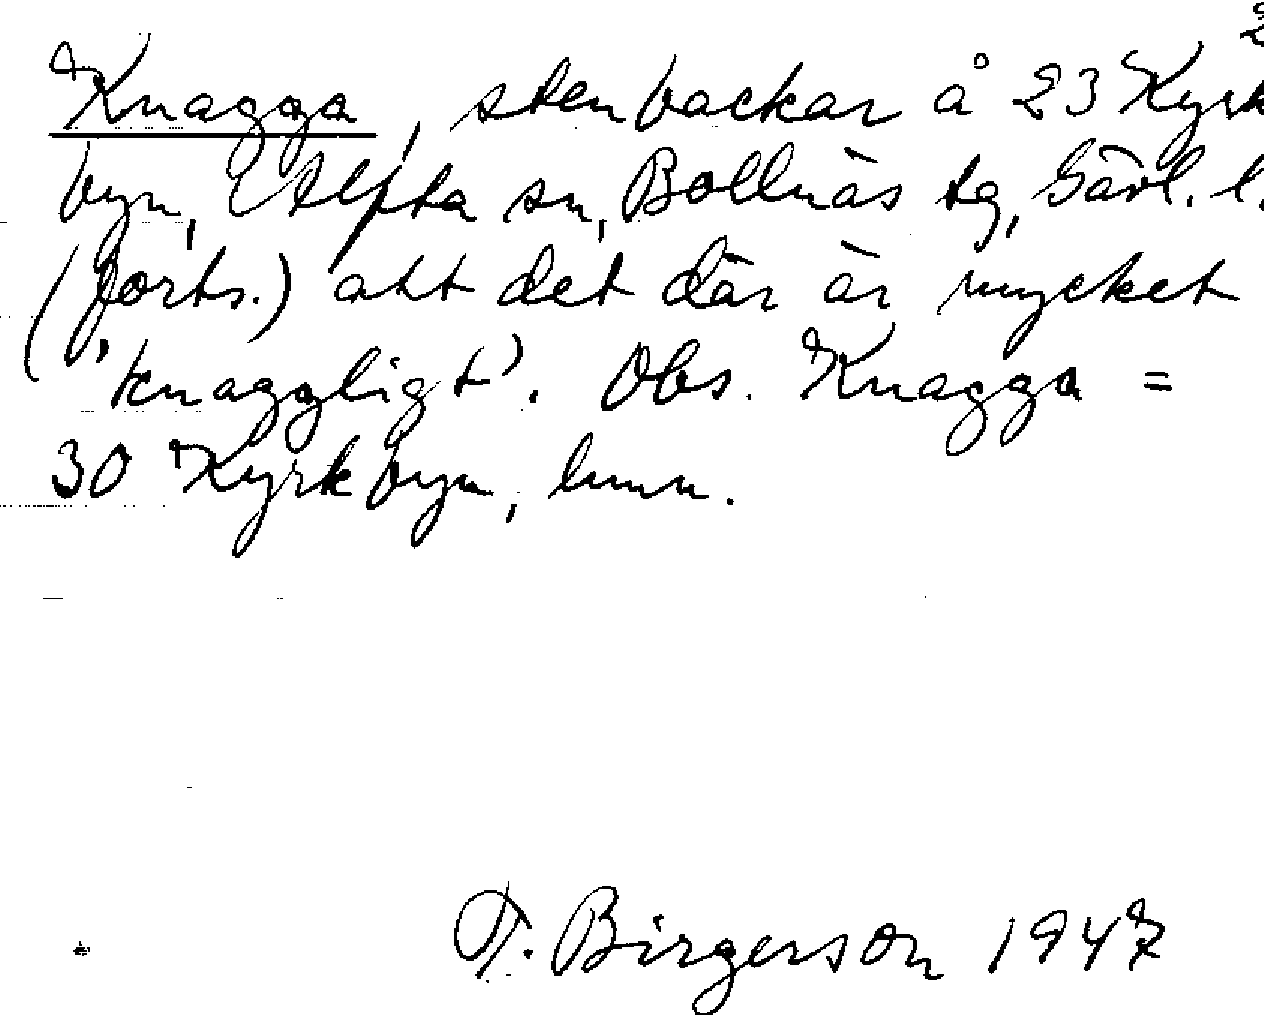 2
Knagga, stenbackar å 23 Kyrk
byn, Alfta sn, Bollnäs tg, Gävl. l.
(forts.) att det där är mycket
'knaggligt'. Obs. Knagga =
30 Kyrkbyn, lunn.
T. Birgerson 1947